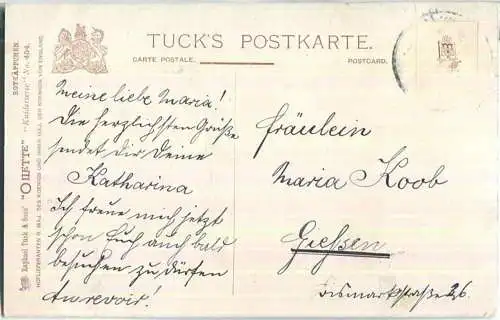 TUCK'S POSTKARTE.
CARTE POSTALE.
POSTCARD.
ROTKÄPPCHEN.
Raphael Tuck & Sons' "OILETTE"
HOFLIEFERANTEN S. MAJ. DES KOENIGS UND IHRER MAJ. DER KOENIGIN VON ENGLAND.
Meine liebe Maria!
Die herzlichsten Grüße
sendet dir Deine
Katharina
Ich freue mich jetzt
schon Euch auch bald
besuchen zu dürfen
Au revoir!
Fräulein
Maria Koob
Giessen
Bismarkstraße 26.